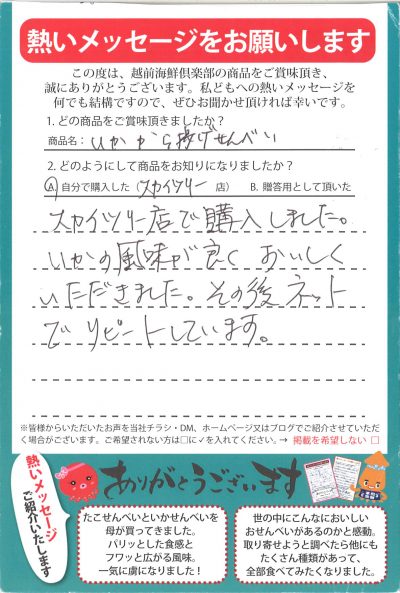 熱いメッセージをお願いします
この度は、越前海鮮倶楽部の商品をご賞味頂き、
誠にありがとうございます。私どもへの熱いメッセージを
何でも結構ですので、ぜひお聞かせ頂ければ幸いです。
1. どの商品をご賞味頂きましたか？
商品名: いかから揚げせんべい
2. どのようにして商品をお知りになりましたか？
A 自分で購入した（スカイツリー 店） B. 贈答用として頂いた
スカイツリー店で購入しました。
いかの風味が良く おいしく
いただきました。その後 ネット
で リピートしています。
※皆様からいただいたお声を当社チラシ・DM、ホームページ又はブログでご紹介させていただ
く場合がございます。ご希望されない方は□に✓を入れてください。→ 掲載を希望しない □
熱いメッセージ
ご紹介いたします
ありがとうございます
たこせんべいといかせんべいを
母が買ってきました。
パリッとした食感と
フワッと広がる風味。
一気に虜になりました！
世の中にこんなにおいしい
おせんべいがあるのかと感動。
取り寄せようと調べたら他にも
たくさん種類があって、
全部食べてみたくなりました。